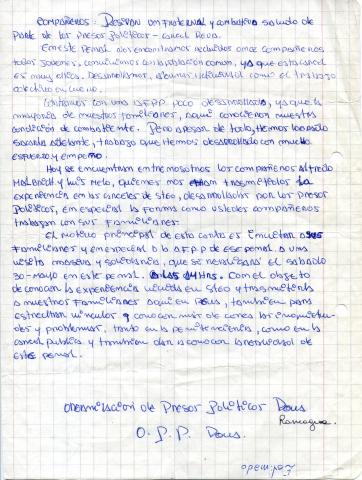 COMPAÑEROS: RECIBAN UN FRATERNAL y COMBATIVO saludo de
parte de los Presos Políticos - Cárcel Rcgua.
En este Penal nos encontramos recluidos once compañeros
todos jovenes, convivimos con la población común, ya que esta cárcel
es muy chica. Desarrollamos, labores individual como el trabajo
colectivo en cuero.
Contamos con una A.F.P.P. poco desarrollada, ya que la
mayoría de nuestros familiares, aquí conocieron nuestra
condición de combatiente. Pero a pesar de todo, hemos logrado
sacarla adelante, trabajo que hemos desarrollado con mucho
esfuerzo y empeño.
Hoy se encuentran entre nosotros los compañeros Alfredo
Malbrich y Luis Melo, quienes nos han trasmitido la
experiencia en las carceles de Stgo, desarrollados por los Presos
Políticos, en especial la forma como ustedes compañeros
trabajan con sus familiares.
El motivo principal de esta carta es invitar a sus
familiares y en especial a la A.F.P.P de ese penal. a una
visita masiva y solidaria, que se realizará el sabado
30-Mayo en este penal. A las 14 Hrs. Con el objeto
de conocer la experiencia vivida en Stgo y trasmitirla
a nuestros familiares aquí en Rcgua, tambien para
estrechar vinculos y conocer mas de cerca las inquietu-
des y problemas, tanto en la penitenciaría, como en la
carcel publica y tambien dar a conocer la realidad de
este penal.
Organizacion de Presos Politicos Rcgua
Rancagua.
O. P. P. Rcgua.